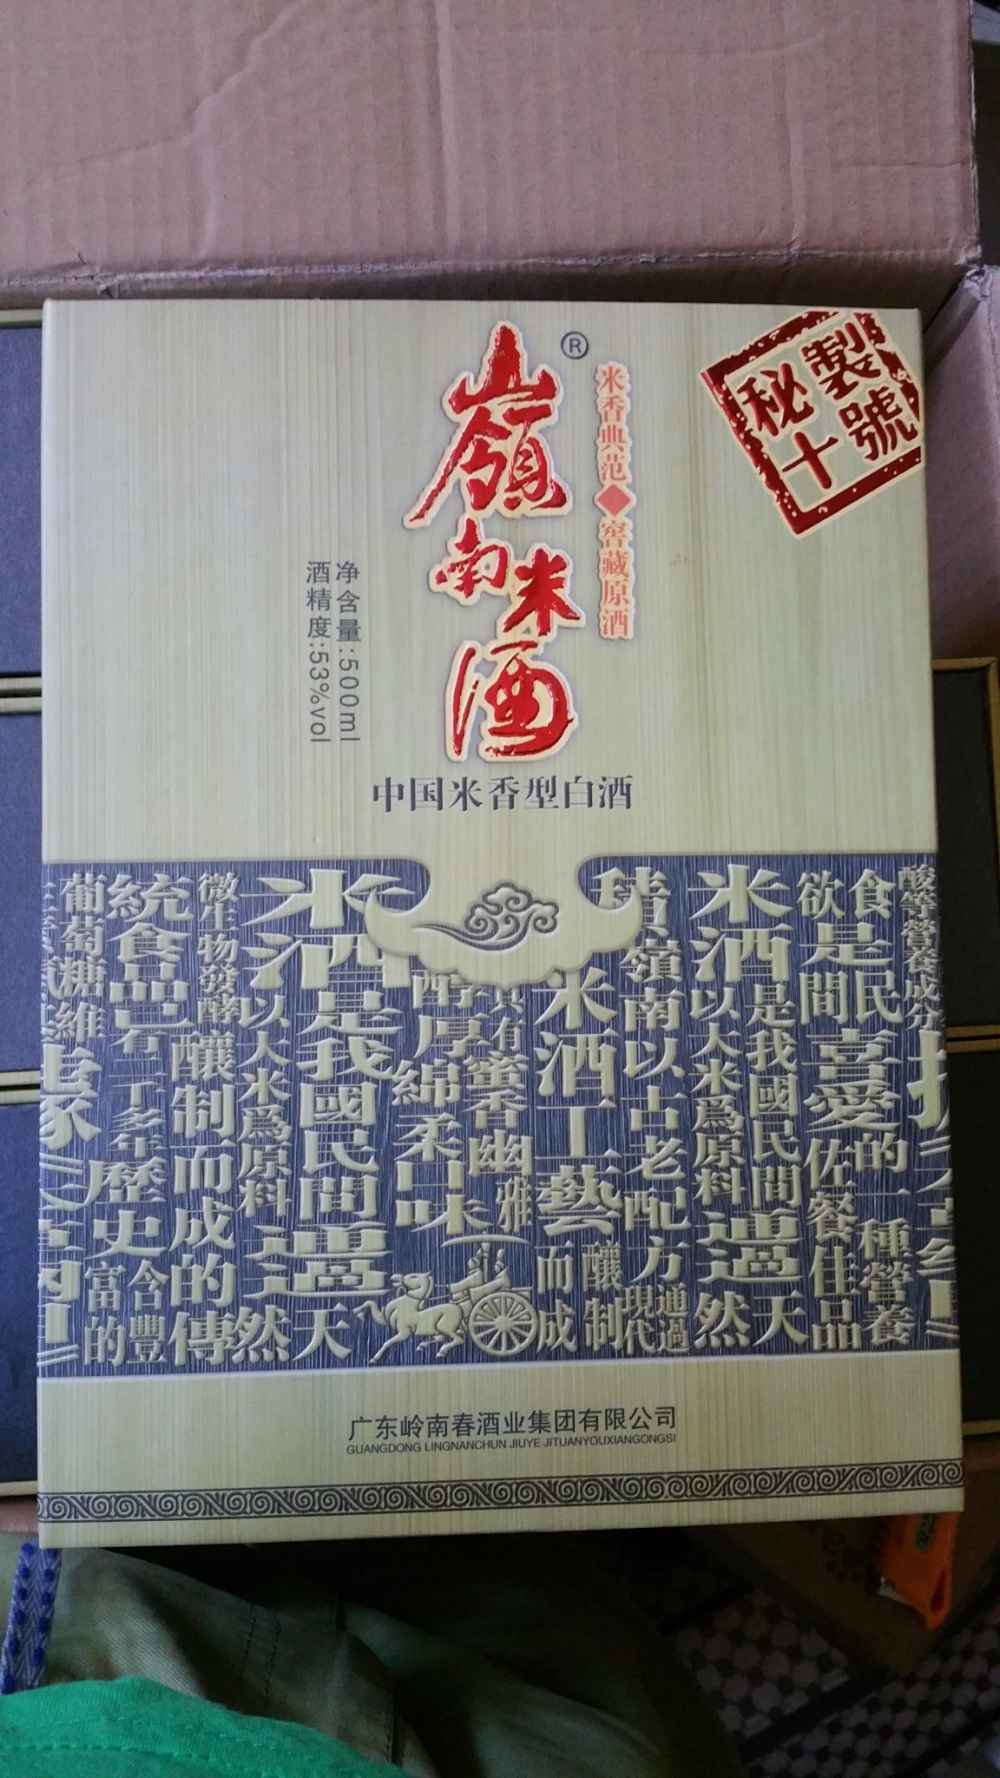 嶺南米酒
®
米香典范◆窖藏原酒
秘製
十號
净含量:500ml
酒精度:53%vol
中国米香型白酒
酸等營養成分
食是民
欲是間喜愛的一種營養
佐餐佳品
米酒是我國民間
以大米爲原料
過天然
嶺南
米酒工藝
以古老配方
通過現代
釀制
而成
具有蜜香幽雅
醇厚綿柔口味
米酒是我國民間
以大米爲原料
過天然
微生物發酵
釀制而成的傳
統食品
有二千多年歷史
含豐
富的
葡萄糖
維
广东岭南春酒业集团有限公司
GUANGDONG LINGNANCHUN JIUYE JITUANYOUXIANGONGSI